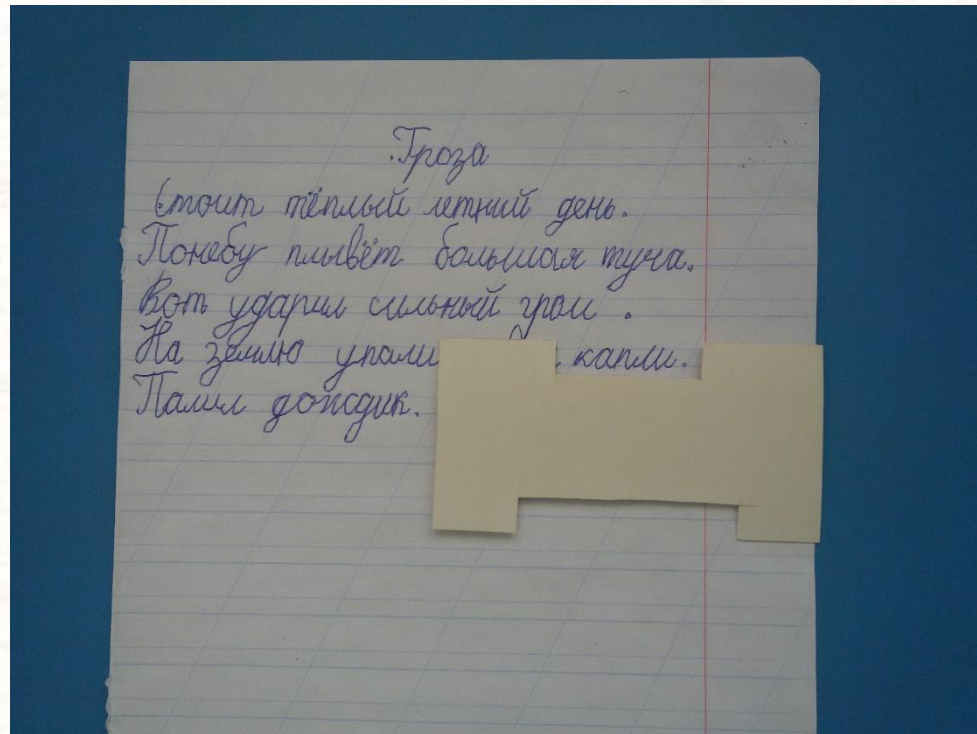 Гроза
Стоит тёплый летний день.
Понебу плывёт большая туча.
Вот ударил сильный гром .
На землю упали капли.
Палил дождик.